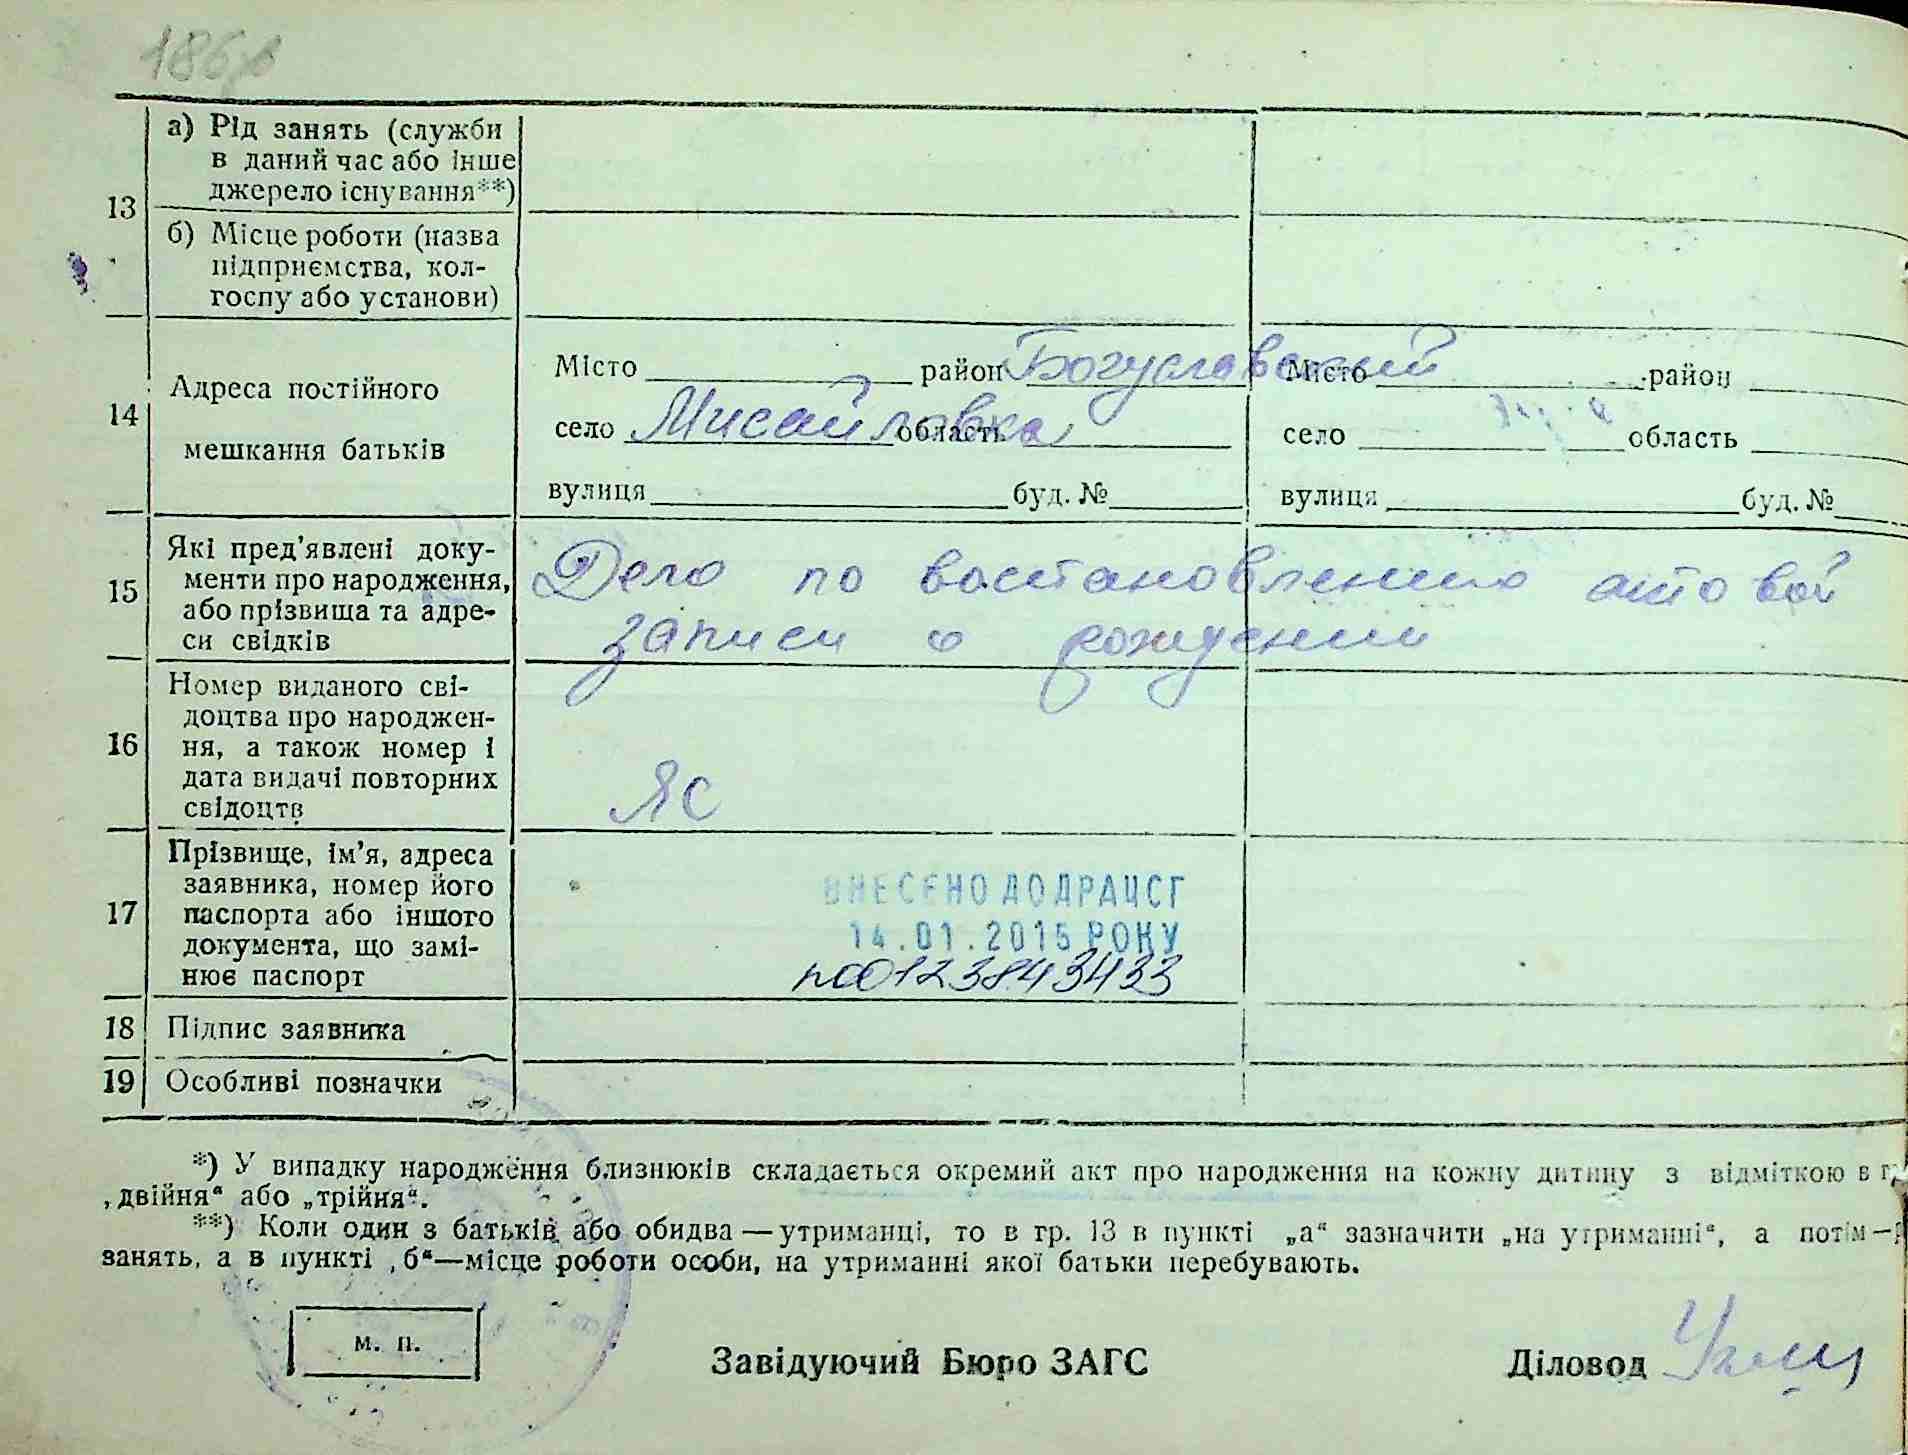 186
а) Рід занять (служби
в даний час або інше
джерело існування**)
13
б) Місце роботи (назва
підприємства, кол-
госпу або установи)
14
Адреса постійного
мешкання батьків
Місто район Богуславский
село Мисайловка область
вулиця буд. №
Місто район
село область
вулиця буд. №
15
Які пред'явлені доку-
менти про народження,
або прізвища та адре-
си свідків
Дело по востановлению актовой
записи о рождении
16
Номер виданого сві-
доцтва про народжен-
ня, а також номер і
дата видачі повторних
свідоцтв
ЯС
17
Прізвище, ім'я, адреса
заявника, номер його
паспорта або іншого
документа, що замі-
нює паспорт
ВНЕСЕНО ДО ДРАЦСГ
14.01.2015 РОКУ
0123843433
18 Підпис заявника
19 Особливі позначки
*) У випадку народження близнюків складається окремий акт про народження на кожну дитину з відміткою в
„двійня“ або „трійня“.
**) Коли один з батьків або обидва — утриманці, то в гр. 13 в пункті „а“ зазначити „на утриманні“, а потім —
занять, а в пункті „б“—місце роботи особи, на утриманні якої батьки перебувають.
м. п.
Завідуючий Бюро ЗАГС
Діловод